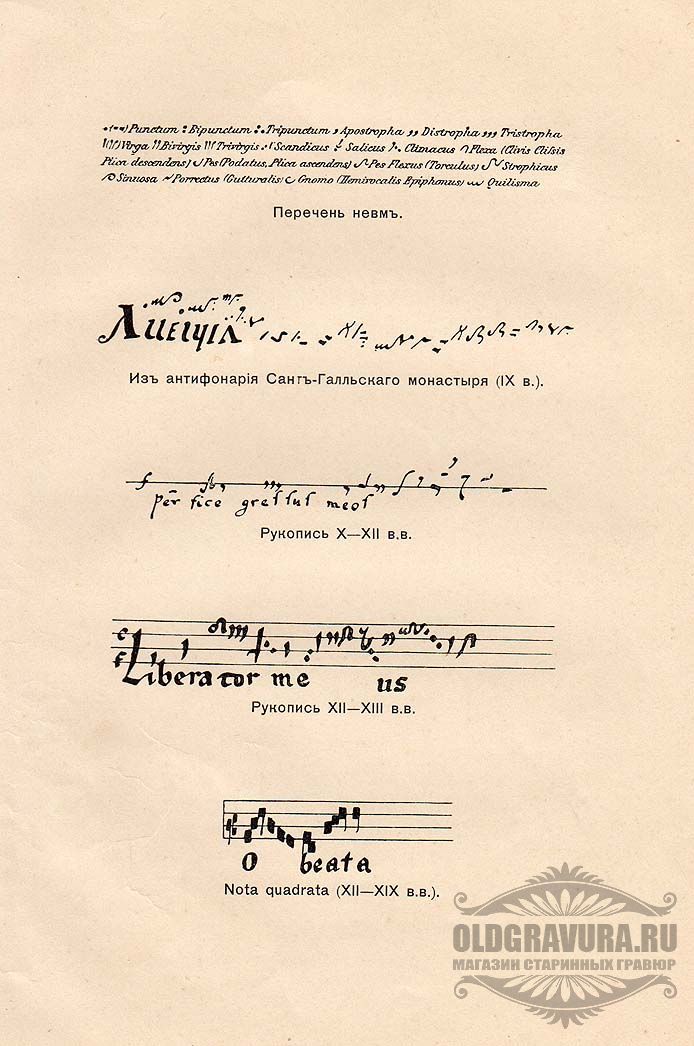 Punctum Bipunctum Tripunctum Apostropha Distropha Tristropha
Virga Bivirgis Trivirgis Scandicus Salicus Climacus Flexa (Clivis Clisis
Plica descendens) Pes (Podatus, Plica ascendens) Pes Flexus (Torculus) Strophicus
Sinuosa Porrectus (Gutturalis) Gnomo (Semivocalis Epiphonus) Quilisma
Перечень невмъ.
Изъ антифонарія Сантъ-Галльскаго монастыря (IX в.).
per fice gressus meos
Рукопись X—XII в.в.
Liberator me us
Рукопись XII—XIII в.в.
O beata
Nota quadrata (XII—XIX в.в.).
OLDGRAVURA.RU
МАГАЗИН СТАРИННЫХ ГРАВЮР